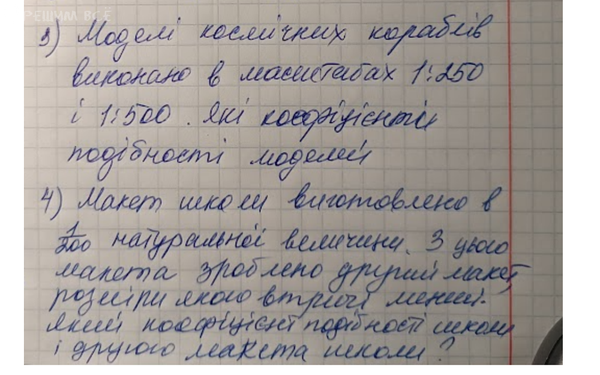 РЕШИМ ВСЕ
3) Моделі космічних кораблів
виконано в масштабах 1:250
і 1:500. Які коефіцієнти
подібності моделей
4) Макет школи виготовлено в
1/200 натуральної величини. З цього
макета зроблено другий макет,
розміри якого втричі менші.
Який коефіцієнт подібності школи
і другого макета школи?